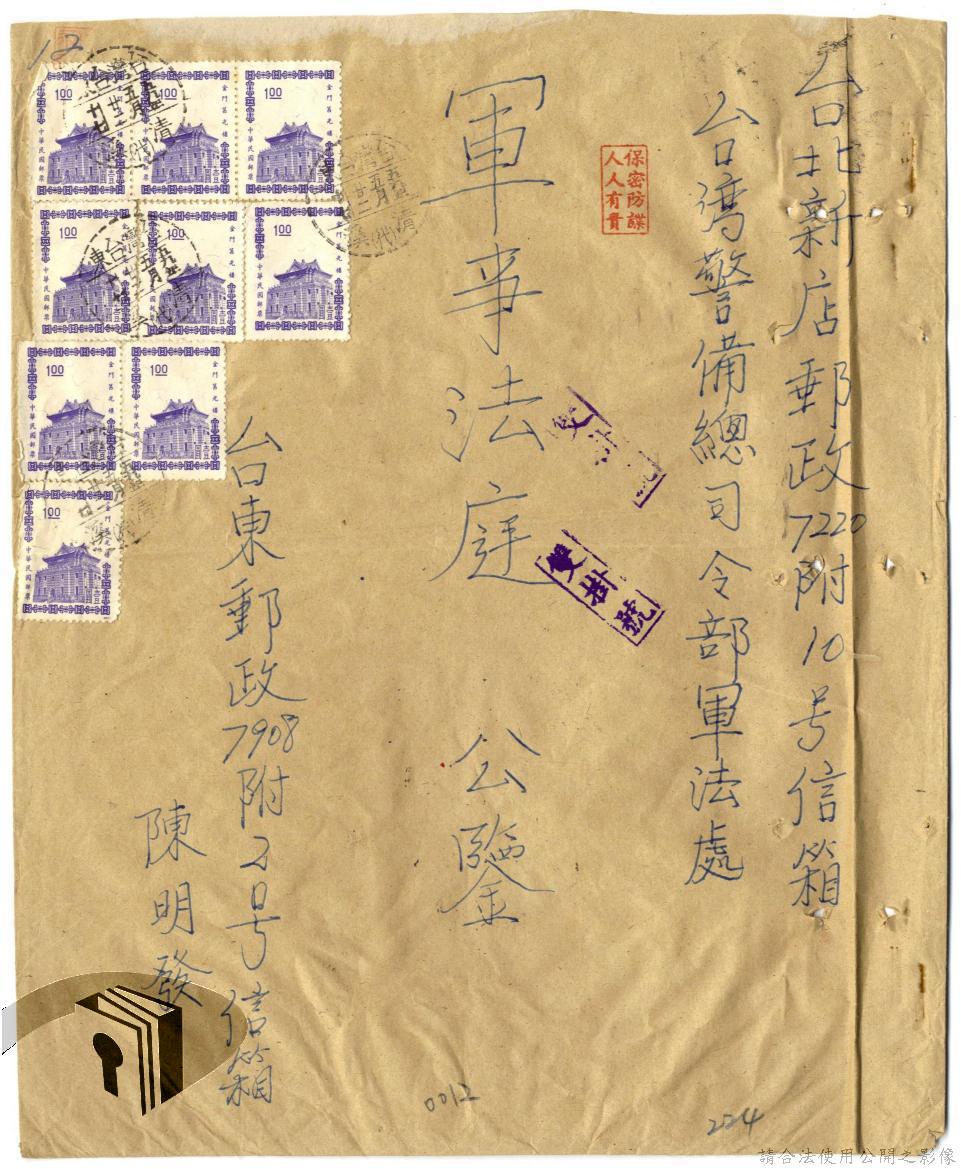 台北新店郵政7220附10号信箱
台湾警備總司令部軍法處
保密防諜
人人有責
軍事法庭 公鑒
雙掛號
雙掛號
台東郵政7908附2号信箱
陳明發
12
1.00
金門莒光樓
中華民國郵票
1.00
金門莒光樓
中華民國郵票
1.00
金門莒光樓
中華民國郵票
1.00
金門莒光樓
中華民國郵票
1.00
金門莒光樓
中華民國郵票
1.00
金門莒光樓
中華民國郵票
1.00
金門莒光樓
中華民國郵票
1.00
金門莒光樓
中華民國郵票
1.00
金門莒光樓
中華民國郵票
0012
224
請合法使用公開之影像